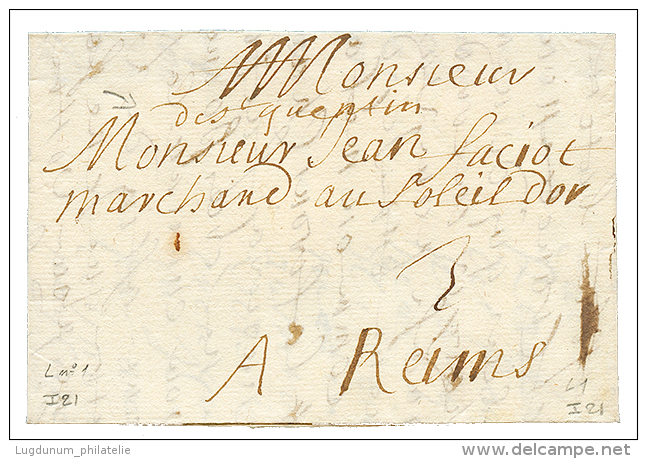 Monsieur
de st quentin
Monsieur Jean faciot
marchand au Soleil dor
2
A Reims
L n° 1
I 21
L1
I 21
Lugdunum_philatelie
delcampe.net